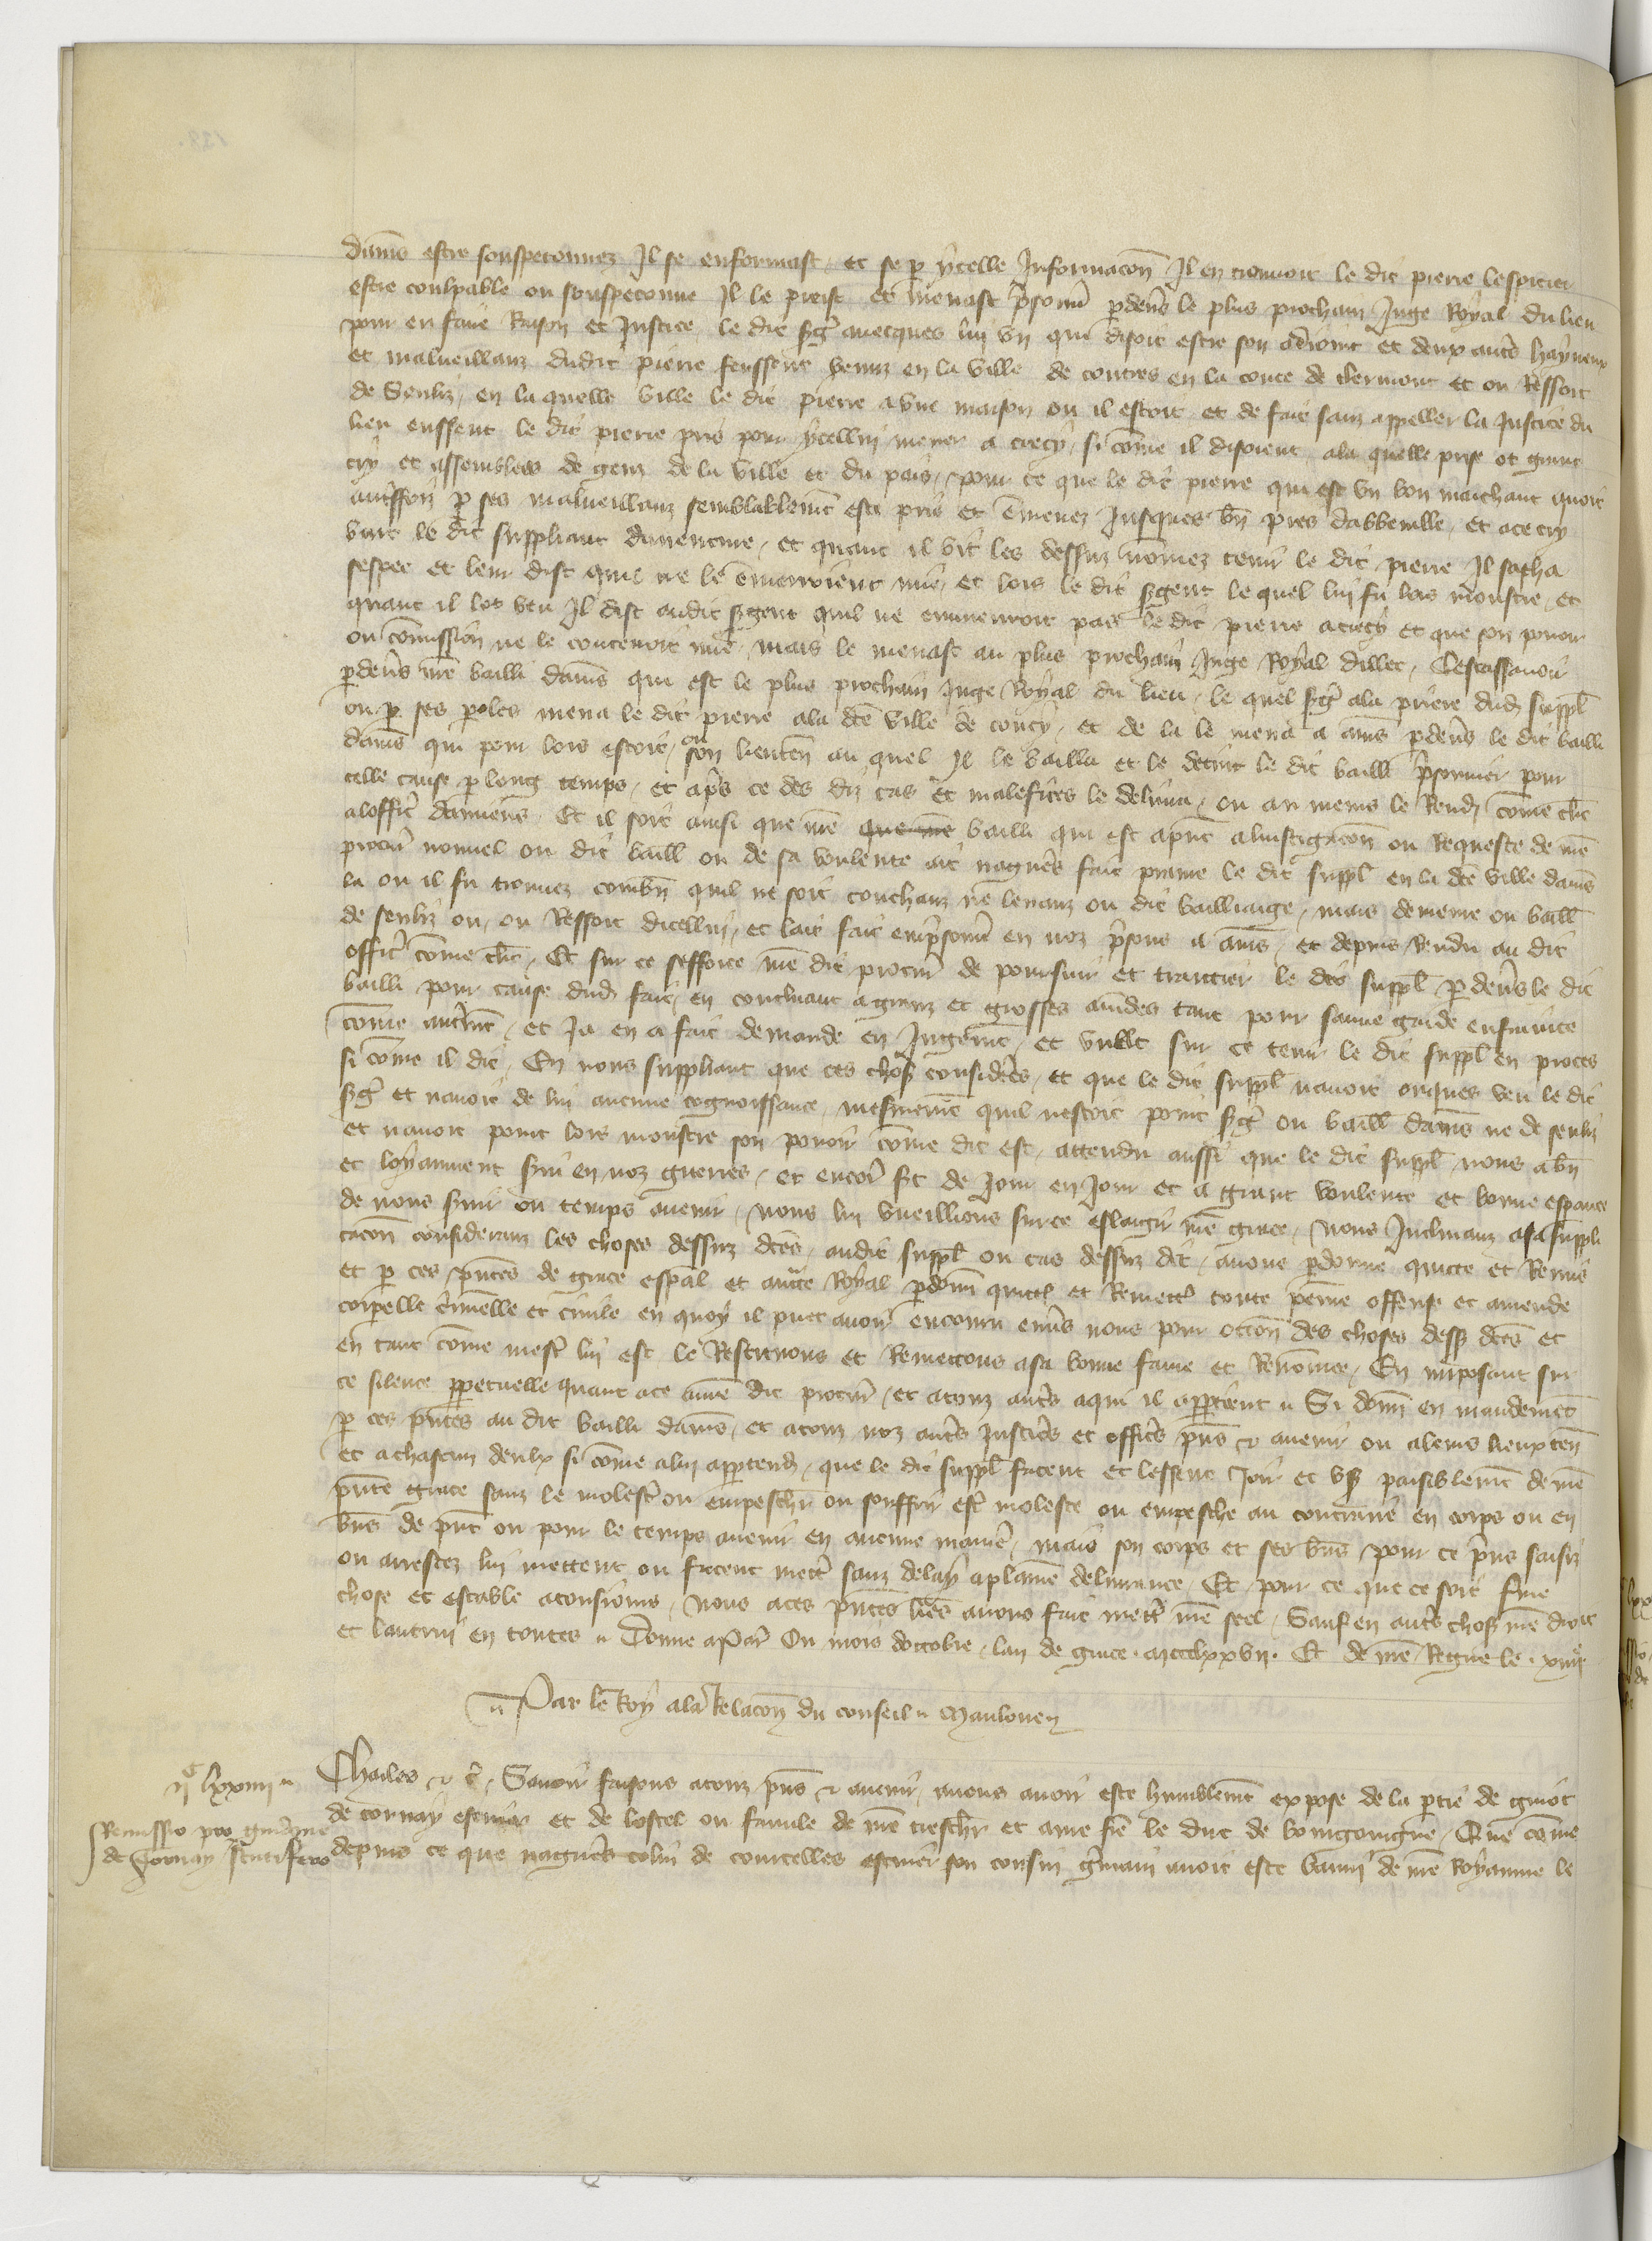 damiens estre souspeconnez Il se enformast et se p ycelle Informacon Il en trouvoit le dit pierre lesoricier
estre coulpable ou souspeconne Il le preist et menast prisonn pardevs le plus prochain Juge Royal du lieu
pour en faire Raison et Justice le dit sgt avecques lui un que disoit estre son adioint et deux autres hayneux
et malveillanz dudit pierre feussent venuz en la ville de contres en la conte de clermont et ou Ressort
de Senliz, en la quelle ville le dit pierre a une maison ou il estoit et de fait sanz appeller la Justice du
lieu eussent le dit pierre pris pour ycellui mener a crecy, si come il disoient, ala quelle prise ot grant
cry et assemblees de genz de la ville et du pais, pour ce que le dit pierre qui est un bon marchant avoit
autreffoiz p ses malveillanz semblablemt este pris et emenez Jusques bn pres dabbeville, et ace cry
vint le dit suppliant daventure, et quant il vit les dessuz nomez tenir le dit pierre Il sacha
sespee et leur dist quil ne le emenroient mie, et lors le dit sgent le quel lui fu lors monstre, et
quant il lot veu Il dist audit sgent quil ne enmenroit pas le dit pierre a crecy et que son povoir
ou comission ne le contenoit mie, mais le menast au plus prochain Juge Royal dillec, Cestassavoir
pdevs nre bailli damiens qui est le plus prochain Juge Royal du lieu, le quel sgt ala priere dud suppl
ou p ses poles mena le dit pierre ala dce ville de coucy, et de la le mena a amiens pdevs le dit bailli
damiens qui pour lors estoit, ou son lieuten au quel Il le bailla et le detint le dit bailli prisonnier pour
celle cause p long temps, et apres ce des diz cas et malefices le delivra, ou au meins le Rend come clerc
a loffice damiens. Et il soit ainsi que nre que nre bailli qui est apnt a linstigacon ou Requeste de nre
procur nouvel ou dit baill ou de sa voulente ait nagueres fait prenre le dit suppl en la dce ville damiens
la ou il fu trouvez combn quil ne soit couchanz ne levanz ou dit bailliaige, mais demeure ou baill
de senliz ou, ou Ressort dicellui, et lait fait emprisonn en noz prisons a amiens, et depuis Rendu au dit
offic come clerc, Et sur ce sefforce nre dit procur de poursuir et traictier le dit suppl pdevs le dit
bailli pour cause dud fait, en concluant a granz et grosses amdes tant pour sauve garde enfrainte
come autremt, et Ja en a fait demande en Jugemt, et vuelt sur ce tenir le dit suppl en proces
si come il dit, En nous suppliant que ces choses considerees, et que le dit suppl navoit onques veu le dit
sgt et navoit de lui aucune cognoissance, mesmemt quil nestoit point sgt ou baill damiens ne de senliz
et navoit point lors monstre son povoir come dit est, attendu aussi que le dit suppl nous a bn
et loyaument servi en noz guerres, et encor fet de Jour en Jour et a grant voulente et bonne espance
de nous servir ou temps avenir, nous lui vueillions sur ce eslargir nre grace, nous Inclinanz asa suppli
cacon considerans les choses dessuz dces, audit suppl ou cas dessuz dit, avons pdonne quicte et Remis
et p ces pntes de grace espal et aucte Royal pdonn quict et Remett toute peine offense et amende
corporelle criminelle et civile en quoy il puet avoir encouru envers nous pour occon des choses dess dces et
en tant come mest lui est le Restituons et Remettons asa bonne fame et Renomee, En imposant sur
ce silence ppetuelle quant ace anre dit procur, et atouz autres aqui il appartient. Si donn en mandemt
p ces pntes au dit bailli damiens, et atouz noz autres Justiciers et officiers pns & avenir ou aleurs lieuxten
et achascun deulx si come alui appartend, que le dit suppl facent et lessent Joir et user paisiblemt de nre
pnte grace sanz le molester ou empescher ou souffrir est moleste ou empesche au contraire en corps ou en
biens de pnt ou pour le temps avenir en aucune maniere, mais son corps et ses biens pour ce pris saisiz
ou arrestez lui mettent ou facent mett sanz delay aplaine delivrance, Et pour ce que ce soit ferme
chose et estable atousiours, nous aces pntes lres avons fait mett nre seel, Sauf en autres choses nre droit
et lautrui en toutes. Donne a Par Ou mois doctobre, lan de grace mccclxxvii. Et de nre Regne le xiiiie
Par le Roy ala Relacon du conseil. Mauloue
iic lxxiiii
Remissio pro guidone
de Tornay scutifero
Charles &c, Savoir faisons atouz pns & avenir, nous avoir este humblemt expose de la ptie de guiot
de tornay escuier et de lostel ou famile de nre trescher et ame fre le duc de bourgoingne, Que come
depuis ce que nagueres colin de courcelles escuier son cousin germain avoit este banni de nre Royaume le